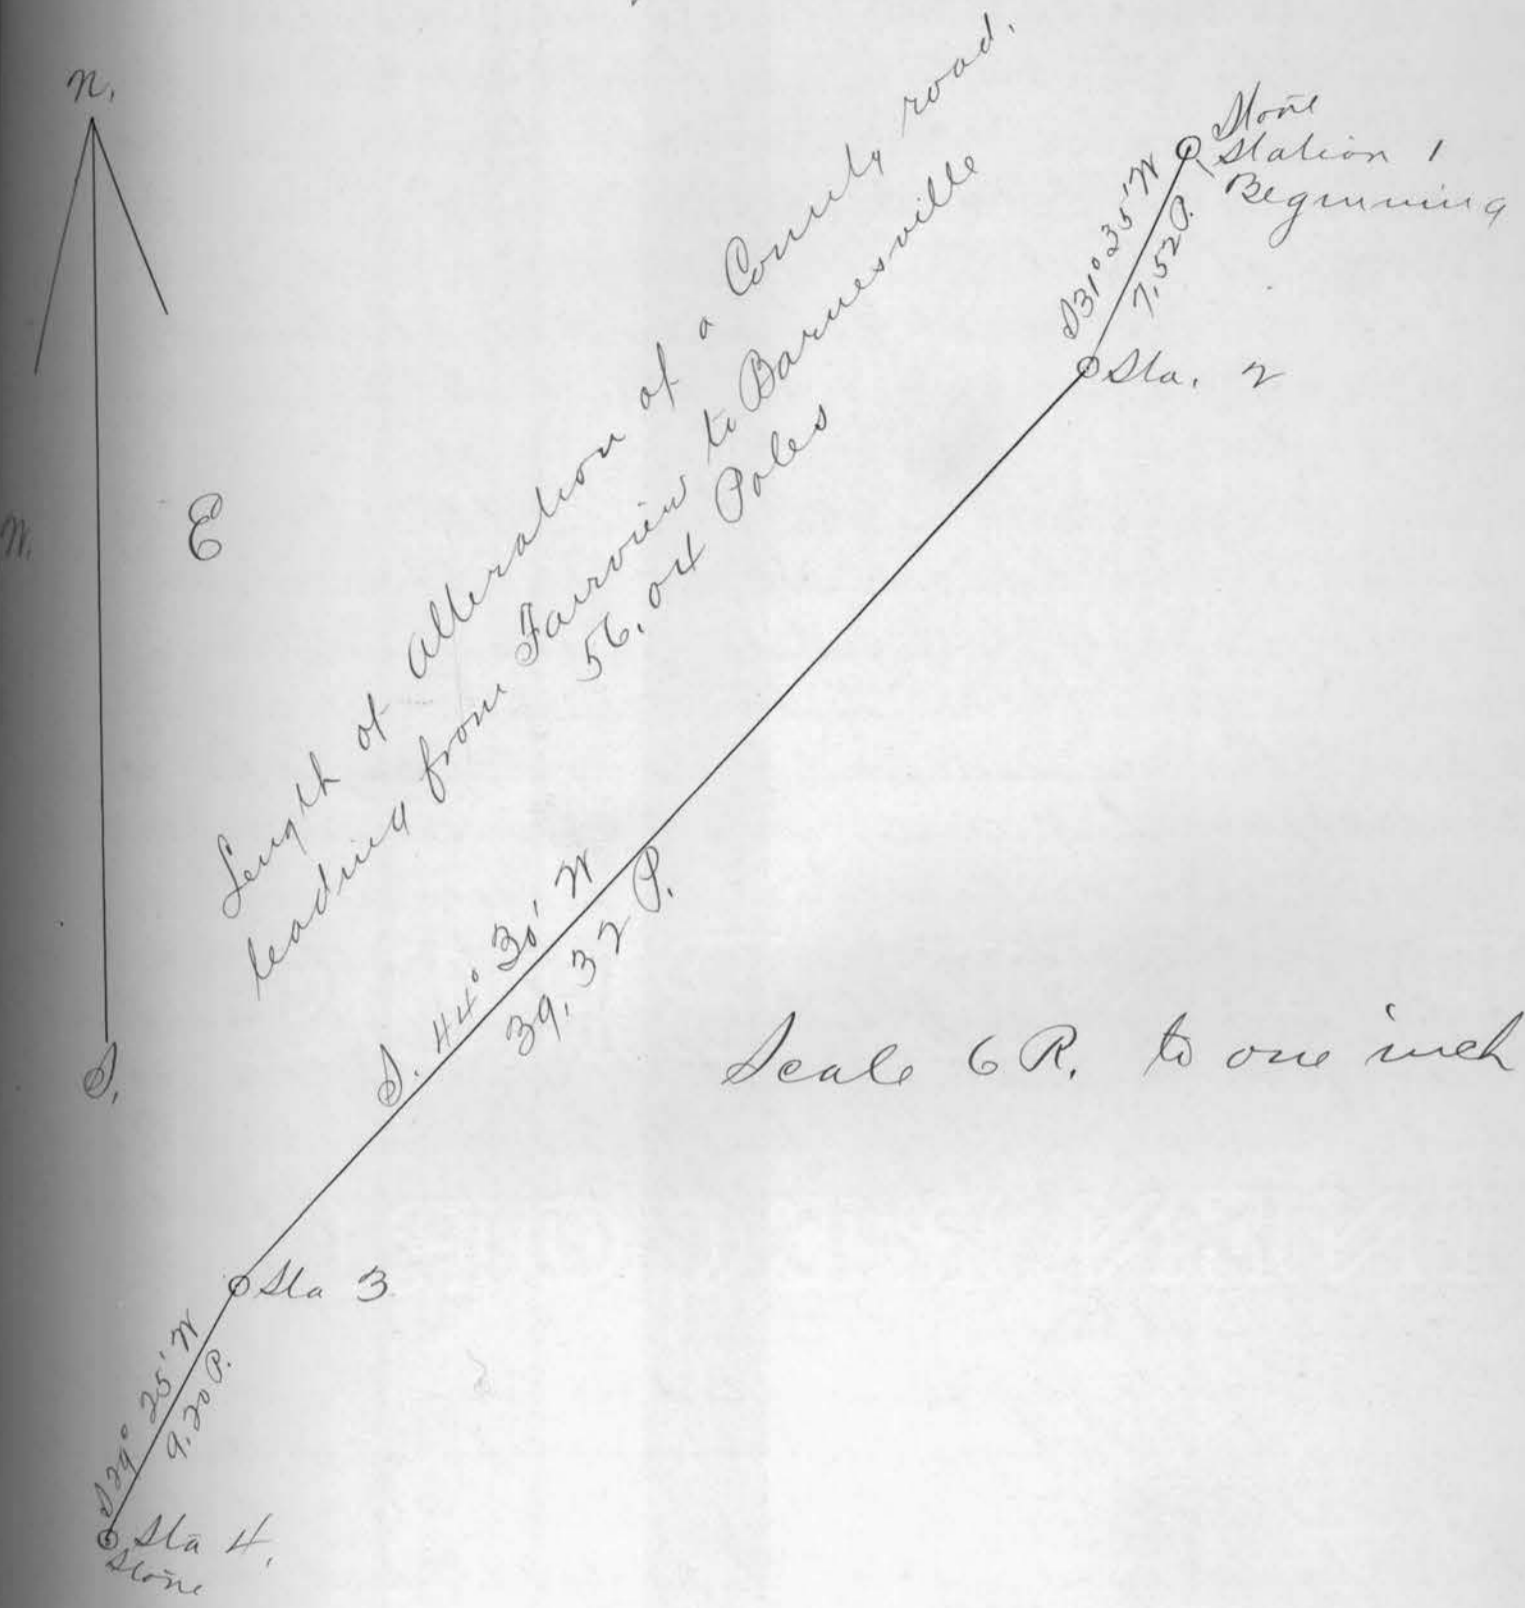 N.
W.
E
S.
Length of Alteration of a County road.
leading from Fairview to Barnesville
56,04 Poles
Stone
Station 1
Beginning
S 31° 35' W
7,52 P.
Sta. 2
S. 44° 30' W
39,32 P.
Scale 6 R. to one inch
Sta 3
S 29° 25' W
9,20 P.
Sta 4.
Stone